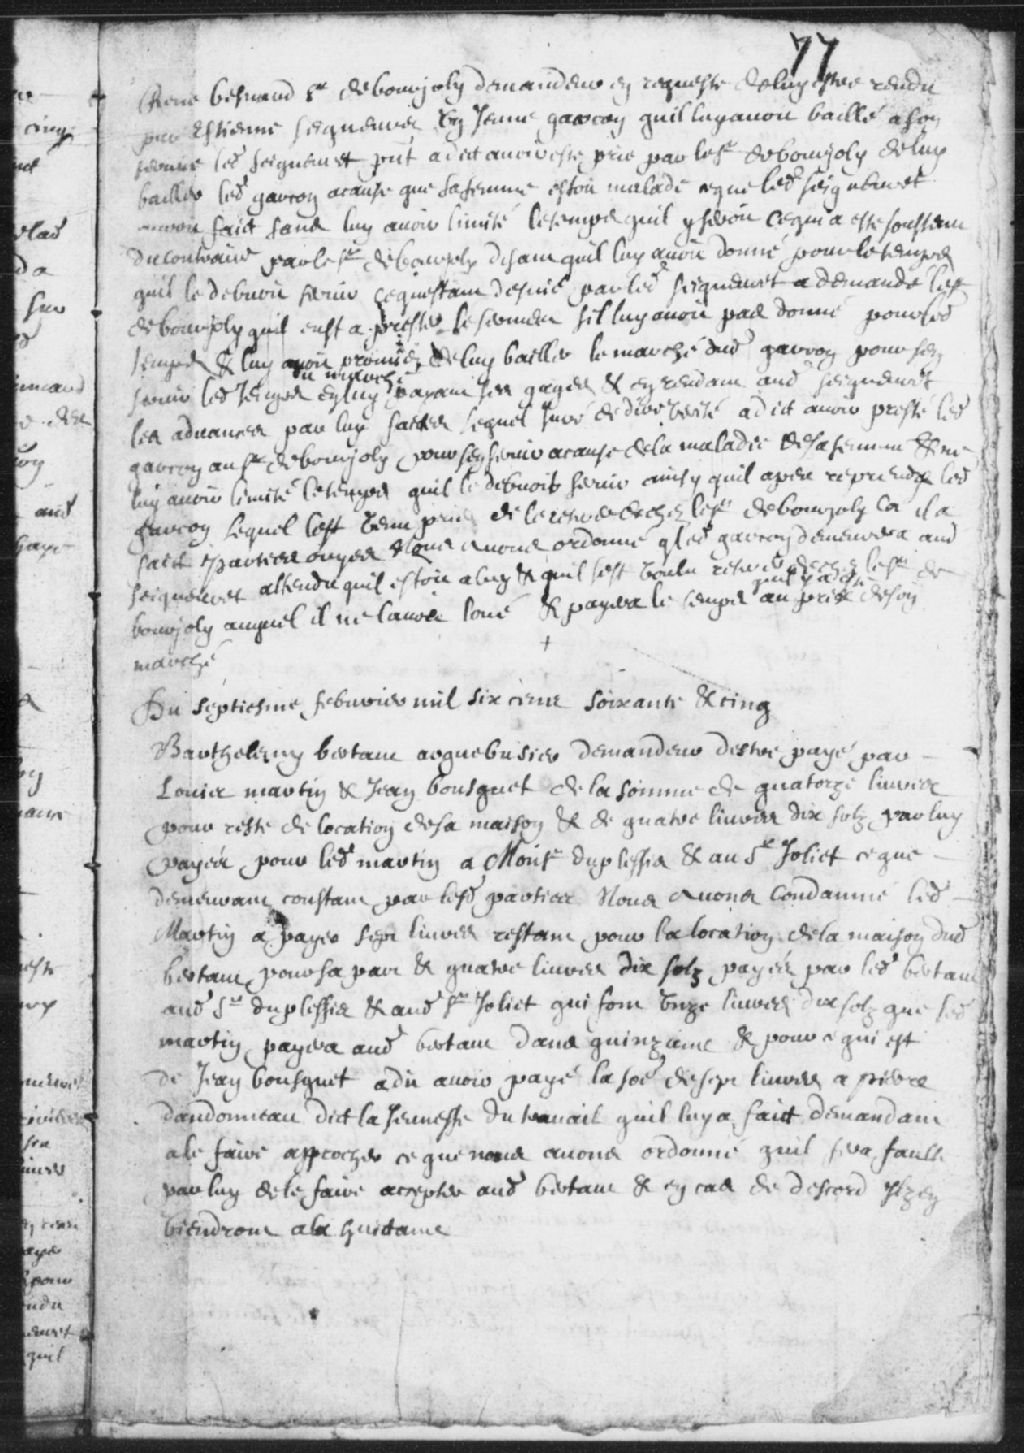 77
Rene besnard sr de bourjoly demandeur en requeste de luy estre rendu
par Estienne seigneuret un Jeune garcon quil luy avoit baillé a son
service led seigneuret pnt a dict avoir esté prié par le sr de bourjoly de luy
bailler led garcon a cause que sa femme estoit malade ce que led seigneuret
auroit faict sans luy avoir limité le temps quil y seroit ce qui a esté soustenu
du contraire par le sr de bourjoly disant quil luy avoit donné pour le temps
quil le debvoit servir ce questant desnié par led seigneuret a demandé led sr
de bourjoly quil eust a prester le serment sil luy avoit pas donné pour led
temps & luy avoit promis de luy bailler le marché dud garcon pour sen
servir led temps en luy payant ses gages & en rendant aud seigneuret
du marché
les advances par luy faictes lequel juré de dire verité a dict avoir presté led
garcon au sr de bourjoly pour sen servir a cause de la maladie de sa femme & ne
luy avoir limité le temps quil le debvoit servir ainsy quil a peu reprendre led
garcon lequel sest venu prier de le retirer de chez le sr de bourjoly ce quil a
faict Parties ouyes Nous avons ordonné q led garcon demeurera aud
seigneuret attendu quil estoit a luy & quil sest voulu retirer de chez le sr de
bourjoly auquel il ne lavoit loué & payera le temps quil y a esté au prix de son
marché
Du septiesme febvrier mil six cens soixante & cinq
Barthelemy bertaut arquebusier demandeur destre payé par
Louis martin & Jean bousquet de la somme de quatorze livres
pour reste de location de sa maison & de quatre livres dix solz par luy
payés pour led martin a Monsr duplessis & au Sr Joliet ce que
demeurant constant par lesd parties Nous avons Condamné led
Martin a payer sept livres restant pour la location de la maison dud
bertaut pour sa part & quatre livres dix solz payés par led bertaut
aud Sr duplessis & aud sr Joliet qui font unze livres dix solz que led
martin payera aud bertaut dans quinzaine & pour ce qui est
de Jean bousquet a dit avoir payé la soe de sept livres a pierre
dandonneau dict la Jeunesse du travail quil luy a faict demandant
a le faire approcher ce que nous avons ordonné quil sera faulte
par luy de le faire accepter aud bertaut & en cas de descord ilz en
viendront a la huictaine